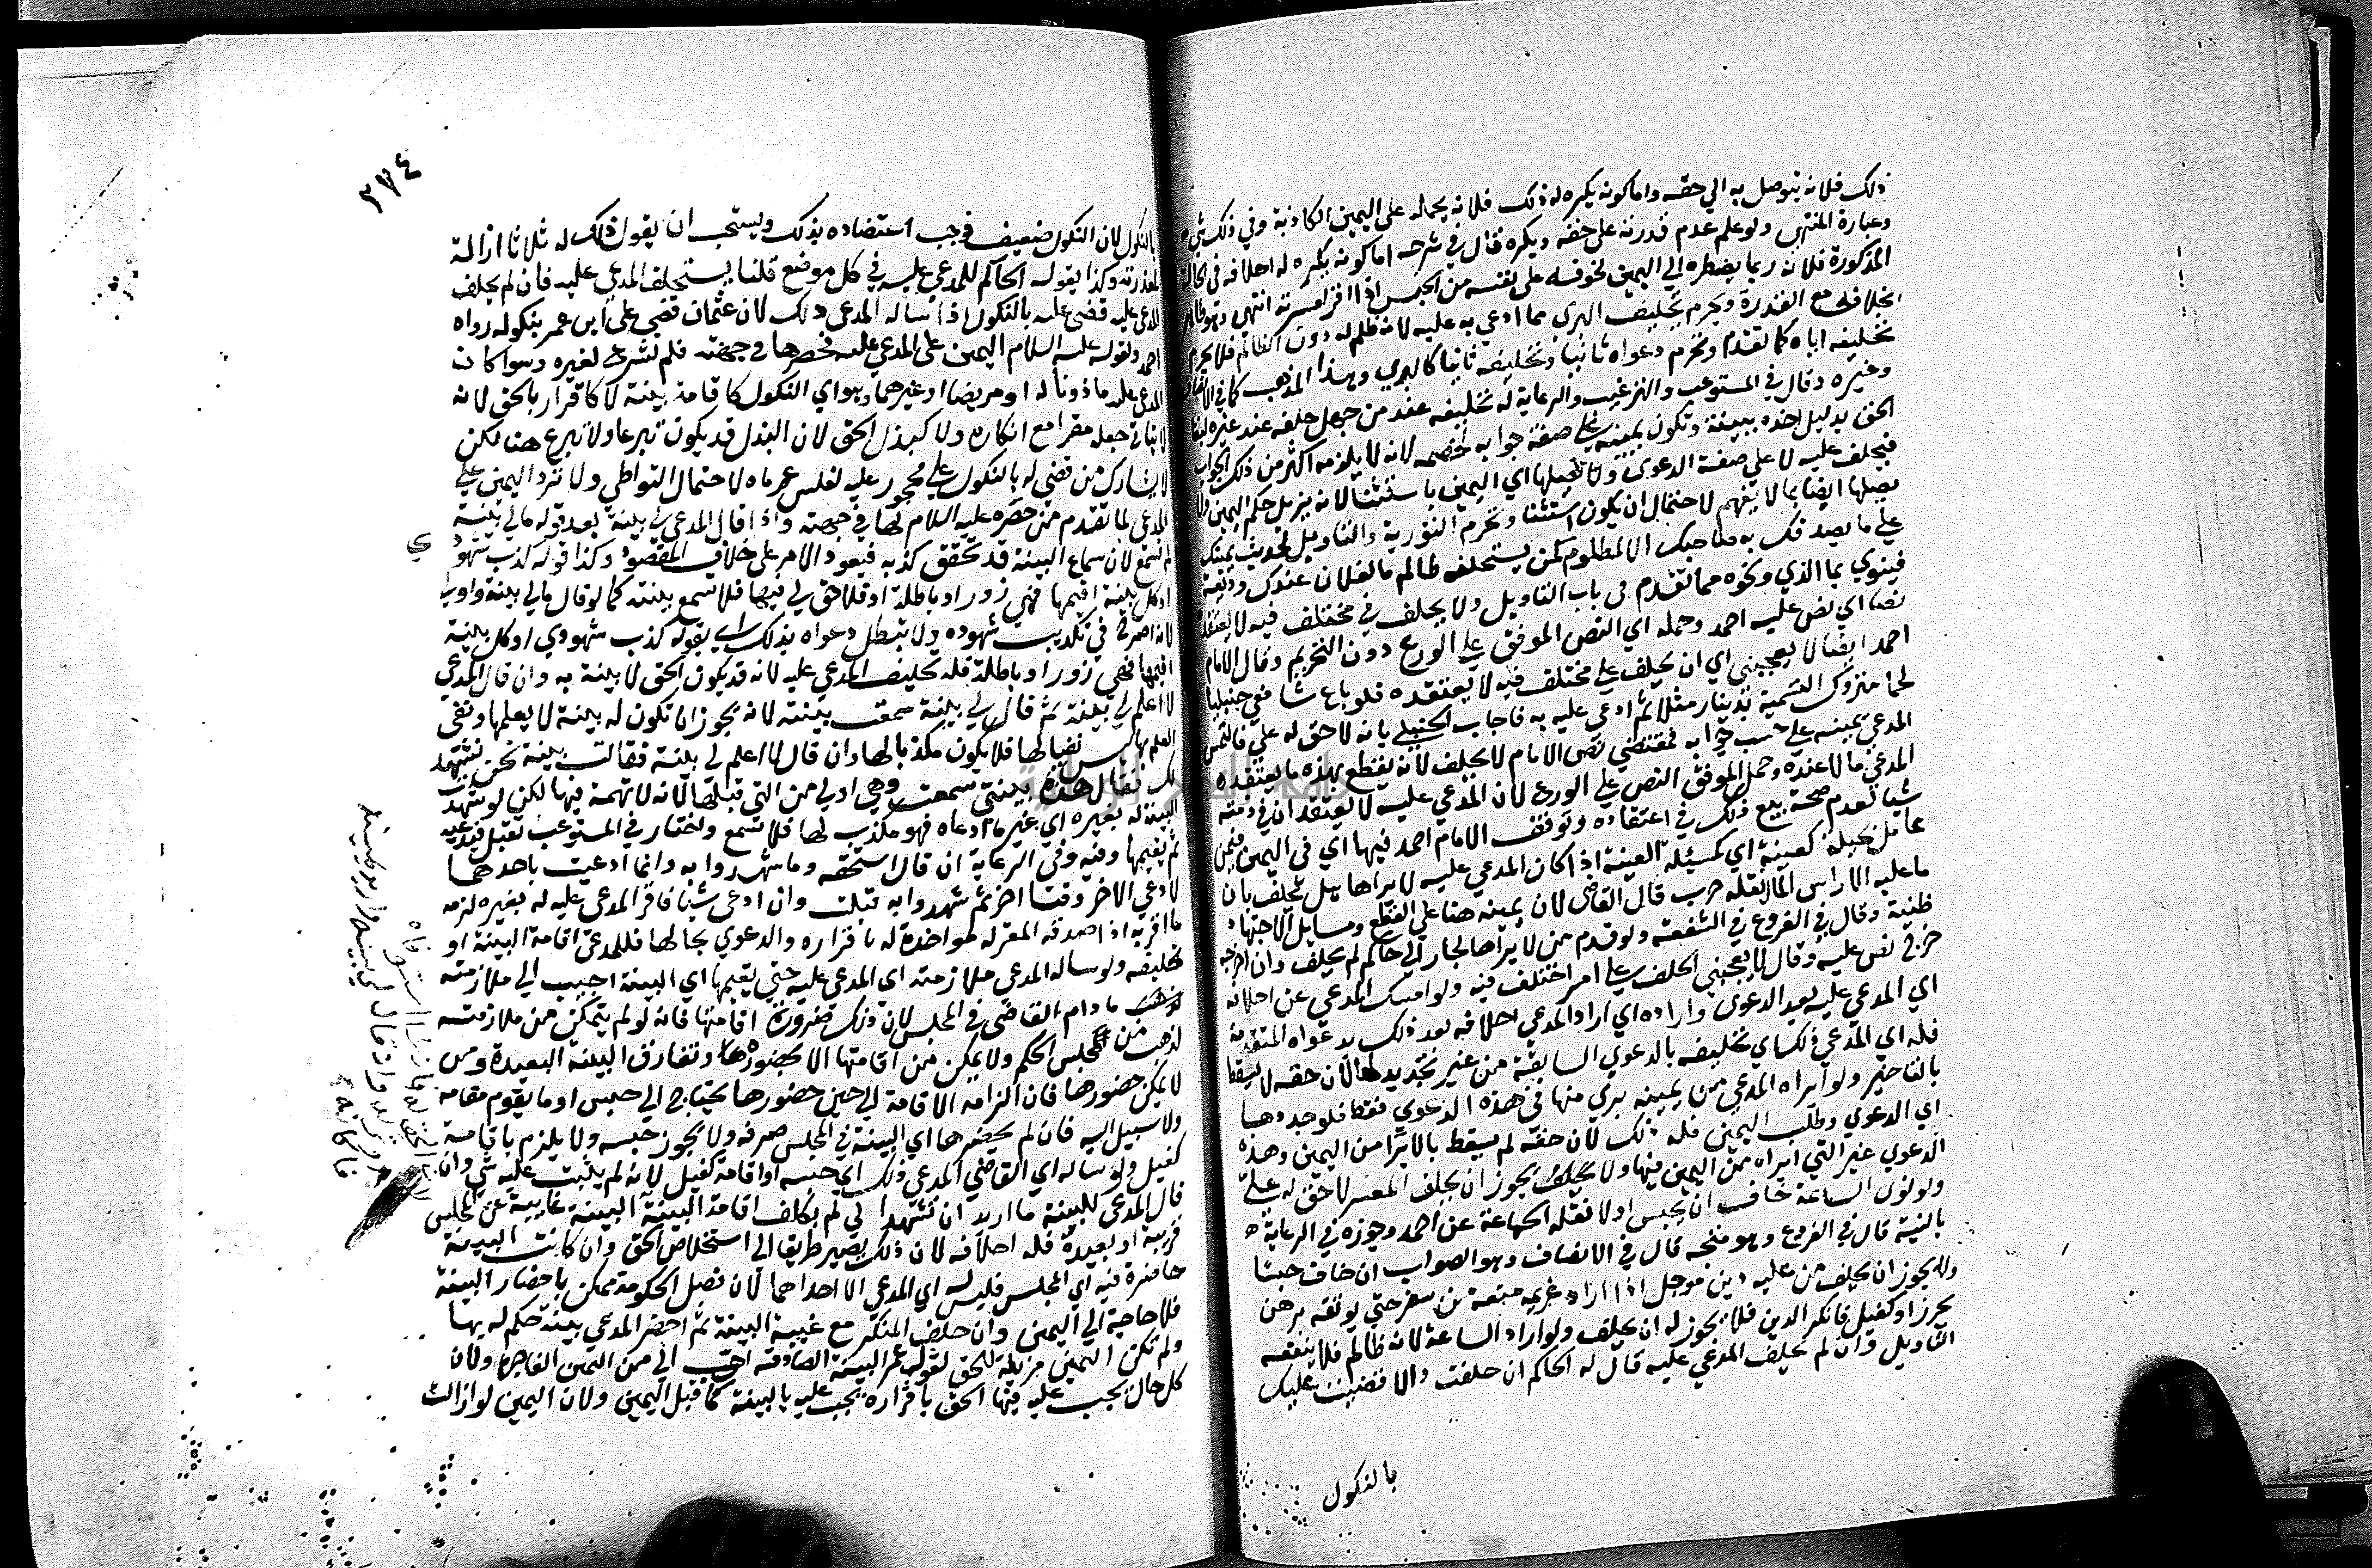 ذلك فلانه يتوصل به الي حقه واما كونه يكره له ذلك فلانه يحمله على اليمين الكاذبة وفي ذلك شي
وعبارة المنتهى ولو علم عدم قدرته على حقه ويكره قال في شرحه اما كونه يكره له احلافه في الحالة
المذكورة فلانه ربما يضطره الي اليمين لخوفه على نفسه من الحبس اذا اقر لعسرته انتهى وهو ظاهر
بخلافه مع القدرة ويحرم تحليف البري مما ادعي به عليه لانه ظلم له دون الظالم فلا يحرم
تحليفه اياه كما تقدم وتحرم دعواه ثانيا وتحليفه ثانيا كالبري وهذا المذهب كما في الانصاف
وغيره وقال في المستوعب والترغيب والرعاية له تحليفه عند من جهل حلفه عند غيره لبقا
الحق بدليل اخذه ببينة وتكون يمينه على صفة جوابه لخصمه لانه لا يلزمه اكثر من ذلك الجواب
فيحلف عليه لا على صفة الدعوي ولا يصلها اي اليمين باستثنا لانه يزيل حكم اليمين ولا
يصلها ايضا بما لا يفهم لاحتمال ان يكون استثنا وتحرم التورية والتاويل لحديث يمينك
على ما يصدقك به صاحبك الا لمظلوم كمن يستحلفه ظالم ما لفلان عندك وديعة
فينوي بما الذي ونحوه مما تقدم في باب التاويل ولا يحلف في مختلف فيه لا يعتقده
نصا اي نص عليه احمد وحمله اي النص الموفق على الورع دون التحريم وقال الامام
احمد ايضا لا يعجبني اي ان يحلف على مختلف فيه لا يعتقده فلو باع شافعي حنبليا
لحما متروك التسمية بدينار مثلا ثم ادعي عليه به فاجاب الحنبلي بانه لا حق له علي فالتمس
المدعي يمينه على حسب جوابه فمقتضي نص الامام لا يحلف لانه يقتطع بهذه ما يعتقده
المدعي مالا عنده وحمل الموفق النص على الورع لان المدعي عليه لا يعتقد ان في ذمته
شيا لعدم صحة بيع ذلك في اعتقاده وتوقف الامام احمد فيها اي في اليمين فيمن
عامل بحيلة كعينة اي كمسئلة العينة اذا كان المدعي عليه لا يراها هل يحلف بان
ما عليه الا راس المال نقله حرب قال القاضي لان يمينه هنا على القطع ومسايل الاجتهاد
ظنية وقال في الفروع في الشفعة ولو قدم من لا يراها لجار الي حاكم لم يحلف وان اخرجه
خرج نص عليه وقال لا يعجبني الحلف على امر اختلف فيه ولو امسك المدعي عن احلافه
اي المدعي عليه بعد الدعوي واراده اي اراد المدعي احلافه بعد ذلك بدعواه المتقدمة
فله اي المدعي ذلك اي تحليفه بالدعوي السابقة من غير تجديدها لان حقه لا يسقط
بالتاخير ولو ابراه المدعي من يمينه بري منها في هذه الدعوي فقط فلو جددها
اي الدعوي وطلب اليمين فله ذلك لان حقه لم يسقط بالابرا من اليمين وهذه
الدعوي غير التي ابراه من اليمين فيها ولا يجوز ان يحلف المعسر لا حق له علي
ولو نوي الساعة خاف ان يحبس او لا نقله الجماعة عن احمد وجوزه في الرعاية
بالنية قال في الفروع وهو متجه قال في الانصاف وهو الصواب ان خاف حبسا
ولا يجوز ان يحلف من عليه دين موجل اذا اراد غريمه منعه من سفر حتي يوثقه برهن
يحرز او كفيل فانكر الدين فلا يجوز له ان يحلف ولو اراد الساعة لانه ظالم فلا ينفعه
التاويل وان لم يحلف المدعي عليه قال له الحاكم ان حلفت والا قضيت عليك
بالنكول
٢٧٤
بالنكول لان النكول ضعيف فوجب اعتضاده بذلك ويستحب ان يقول ذلك له ثلاثا ازالة
لمعذرته وكذا يقول الحاكم للمدعي عليه في كل موضع قلنا يستحلف المدعي عليه فان لم يحلف
المدعي عليه قضي عليه بالنكول اذا ساله المدعي ذلك لان عثمان قضي على ابن عمر بنكوله رواه
احمد ولقوله عليه السلام اليمين على المدعي عليه فحصرها في جهته فلم تشرع لغيره وسوا كان
المدعي عليه ماذونا له او مريضا او غيرهما وهو اي النكول كاقامة بينة لا كاقرار بالحق لانه
لا يتاتي جعله مقرا مع انكاره ولا كبذل الحق لان البذل قد يكون تبرعا ولا تبرع هنا لكن
لا يشارك من قضي له بالنكول على محجور عليه لفلس غرماه لاحتمال التواطي ولا ترد اليمين على
المدعي لما تقدم من حصره عليه السلام لها في جهته واذا قال المدعي لي بينة بعد قوله مالي بينة
لم تسمع لان سماع البينة قد تحقق كذبه فيعود الامر على خلاف المقصود وكذا قوله كذب شهودي
او كل بينة اقيمها فهي زور او باطلة او فلا حق لي فيها فلا تسمع بينته كما لو قال مالي بينة واولي
لانه اصرح في تكذيب شهوده ولا تبطل دعواه بذلك اي بقوله كذب شهودي او كل بينة
اقيمها فهي زور او باطلة فله تحليف المدعي عليه لانه قد يكون الحق لا بينة به وان قال المدعي
لا اعلم لي بينة ثم قال لي بينة سمعت بينته لانه يجوز ان تكون له بينة لا يعلمها ونفي
العلم بها ليس نفيا لها فلا يكون مكذبا لها وان قال لا اعلم لي بينة فقالت بينة نحن نشهد
لك فقال هذه بينتي سمعت وهي اولي من التي قبلها لانه لا تهمة فيها لكن لو شهدت
البينة له بغيره اي غير ما ادعاه فهو مكذب لها فلا تسمع واختار في المستوعب تقبل فيدعيه
ثم يقيمها وفيه وفي الرعاية ان قال استحقه وما شهدوا به وانما ادعيت باحدهما
لادعي الاخر وقتا اخر ثم شهدوا به قبلت وان ادعي شيا فاقر المدعي عليه له بغيره لزمه
ما اقر به اذا صدقه المقر له لمواخذة له باقراره والدعوي بحالها فللمدعي اقامة البينة او
تحليفه ولو سال المدعي ملازمته اي المدعي عليه حتي يقيمها اي البينة اجيب الي ملازمته
ما دام القاضي في المجلس لان ذلك ضرورة اقامتها فانه لو لم يتمكن من ملازمته
لذهب من مجلس الحكم ولا يمكن من اقامتها الا بحضورها وتفارق البينة البعيدة ومن
لا يمكن حضورها فان الزامه الاقامة الي حين حضورها يحتاج الي حبس او ما يقوم مقامه
ولا سبيل اليه فان لم يحضرها اي البينة في المجلس صرفه ولا يجوز حبسه ولا يلزم باقامة
كفيل ولو ساله اي القاضي المدعي ذلك اي حبسه او اقامة كفيل لانه لم يثبت عليه شي وان
قال المدعي للبينة ما اريد ان تشهدا لي لم يكلف اقامة البينة البينة غايبة عن المجلس
قريبة او بعيدة فله احلافه لان ذلك يصير طريقا الي استخلاص الحق وان كانت البينة
حاضرة فيه اي المجلس فليس له اي المدعي الا احداهما لان فصل الحكومة ممكن باحضار البينة
فلا حاجة الي اليمين وان حلف المنكر مع غيبة البينة ثم احضر المدعي بينة حكم له بها
ولم تكن اليمين مزيلة للحق لقول عمر البينة الصادقة احب الي من اليمين الفاجرة ولان
كل حال يجب عليه فيها الحق باقراره يجب عليه بالبينة كما قبل اليمين ولان اليمين لو ازالت